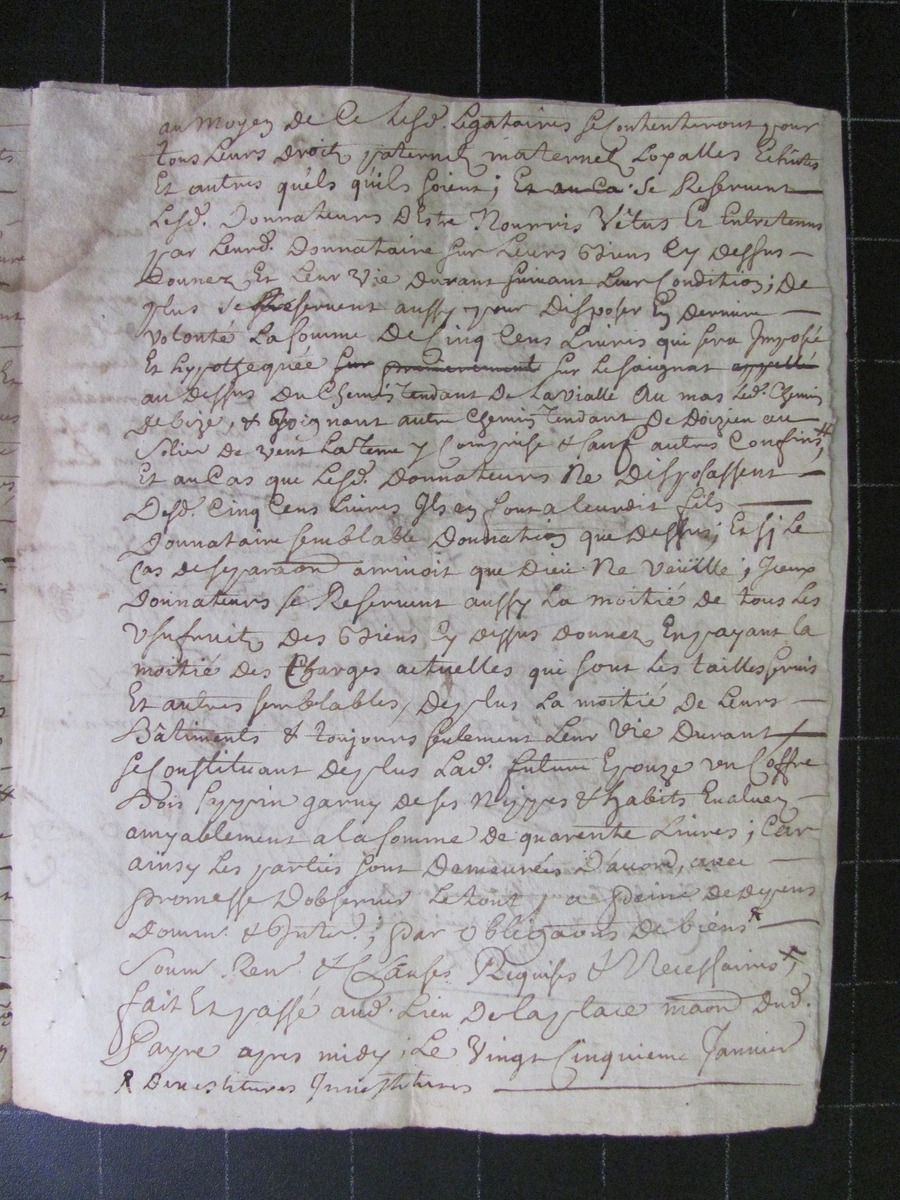 au moyen de Ce Lesd. Legataires se Contenteront pour
tous Leurs droits paternels maternels Loyalles Echutes
Et autres quels quils soient ; Et au Ca. Se Reservent
Lesd. Donnateurs D'Estre Nourris Vêtus Et Entretenus
par Leurd. Donnataire sur Leurs Biens Cy dessus
Donnez Et Leur Vie Durant suivant Leur Condition ; De
plus Se Reservent aussy pour Disposer En Derniere
Volonté La somme De Cinq Cens Livres qui sera Imposé
Et hypottequée sur premierement sur Le saignat appellé
au dessus Du Chemin Tendant De La vialle Au mas Led. Chemin
De bize, & Joignant autre Chemin Tendant De Doizieu au
Solier De vent La Terre y Comprise & sauf autres Confins #
Et au Cas que Lesd. Donnateurs Ne Disposassent
Desd. Cinq Cens Livres Ils En font a leurdit fils
Donnataire semblable Donnation que Dessus ; Et sy Le
Cas de separaon arrivoit que Dieu Ne Veuille ; Iceux
Donnateurs se Reservent aussy La moitié de tous Les
Usufruits Des Biens Cy dessus Donnez En payant la
moitié Des Charges actuelles qui sont Les tailles servis
Et autres semblables, De plus La moitié De Leurs
Bâtiments & toujours seulement Leur Vie Durant
se Constituant De plus Lad. future Epouze un Coffre
Bois sappin garny de ses Nippes & habits Evaluez
amyablement a la somme de quarente Livres ; Car
ainsy Les parties sont Demeurées D'acord, avec
promesse D'observer Le tout, a peine De Depens
Domm. & Inter. ; par obligaons De biens
Soum. Ren. & Clauses Requises & Necessaires x ;
fait Et passé aud. Lieu De La place maon Dud.
Payre apres midy ; Le Vingt Cinquieme Janvier
Investitures